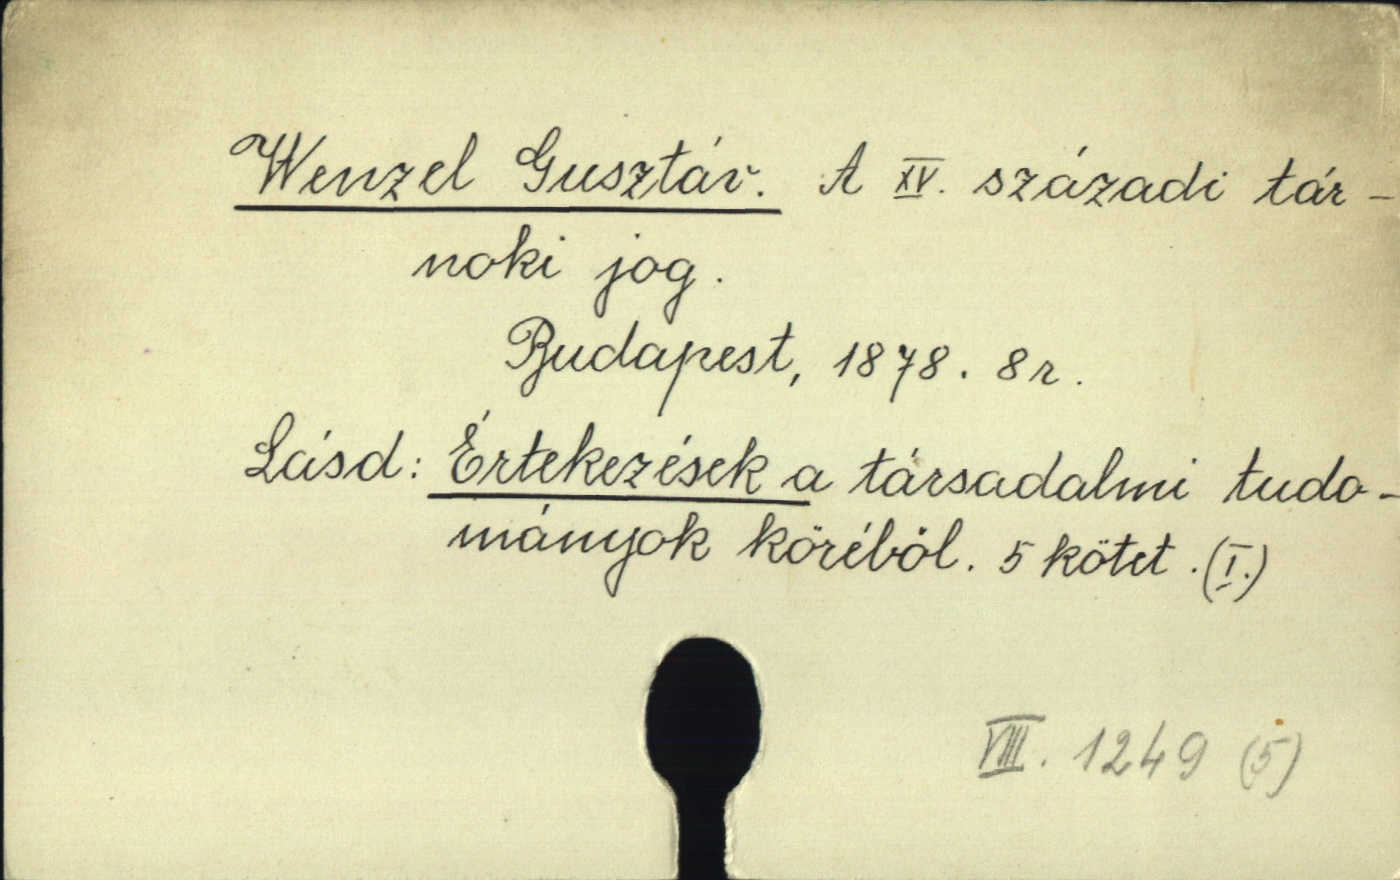 Wenzel Gusztáv. A XV. századi tár-
noki jog.
Budapest, 1878. 8r.
Lásd: Értekezések a társadalmi tudo-
mányok köréből. 5 kötet. (I.)
VIII. 1249 (5)